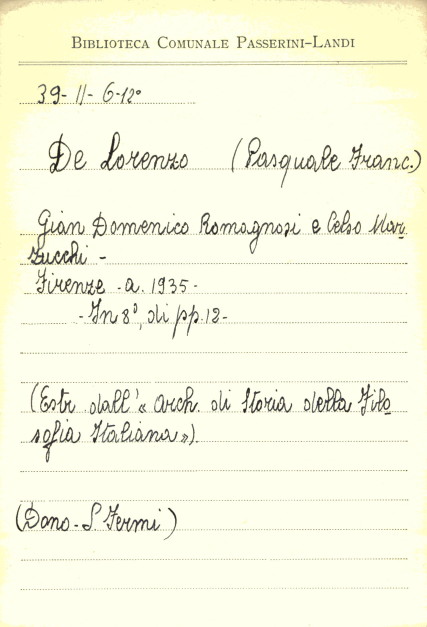 BIBLIOTECA COMUNALE PASSERINI-LANDI
39-II-6-12°
De Lorenzo (Pasquale Franc.)
Gian Domenico Romagnosi e Celso Mar
zucchi -
Firenze - a. 1935 -
- In 8°, di pp. 12 -
(Estr. dall'« Arch. di Storia della Filo
sofia Italiana »).
(Dono - S. Fermi)